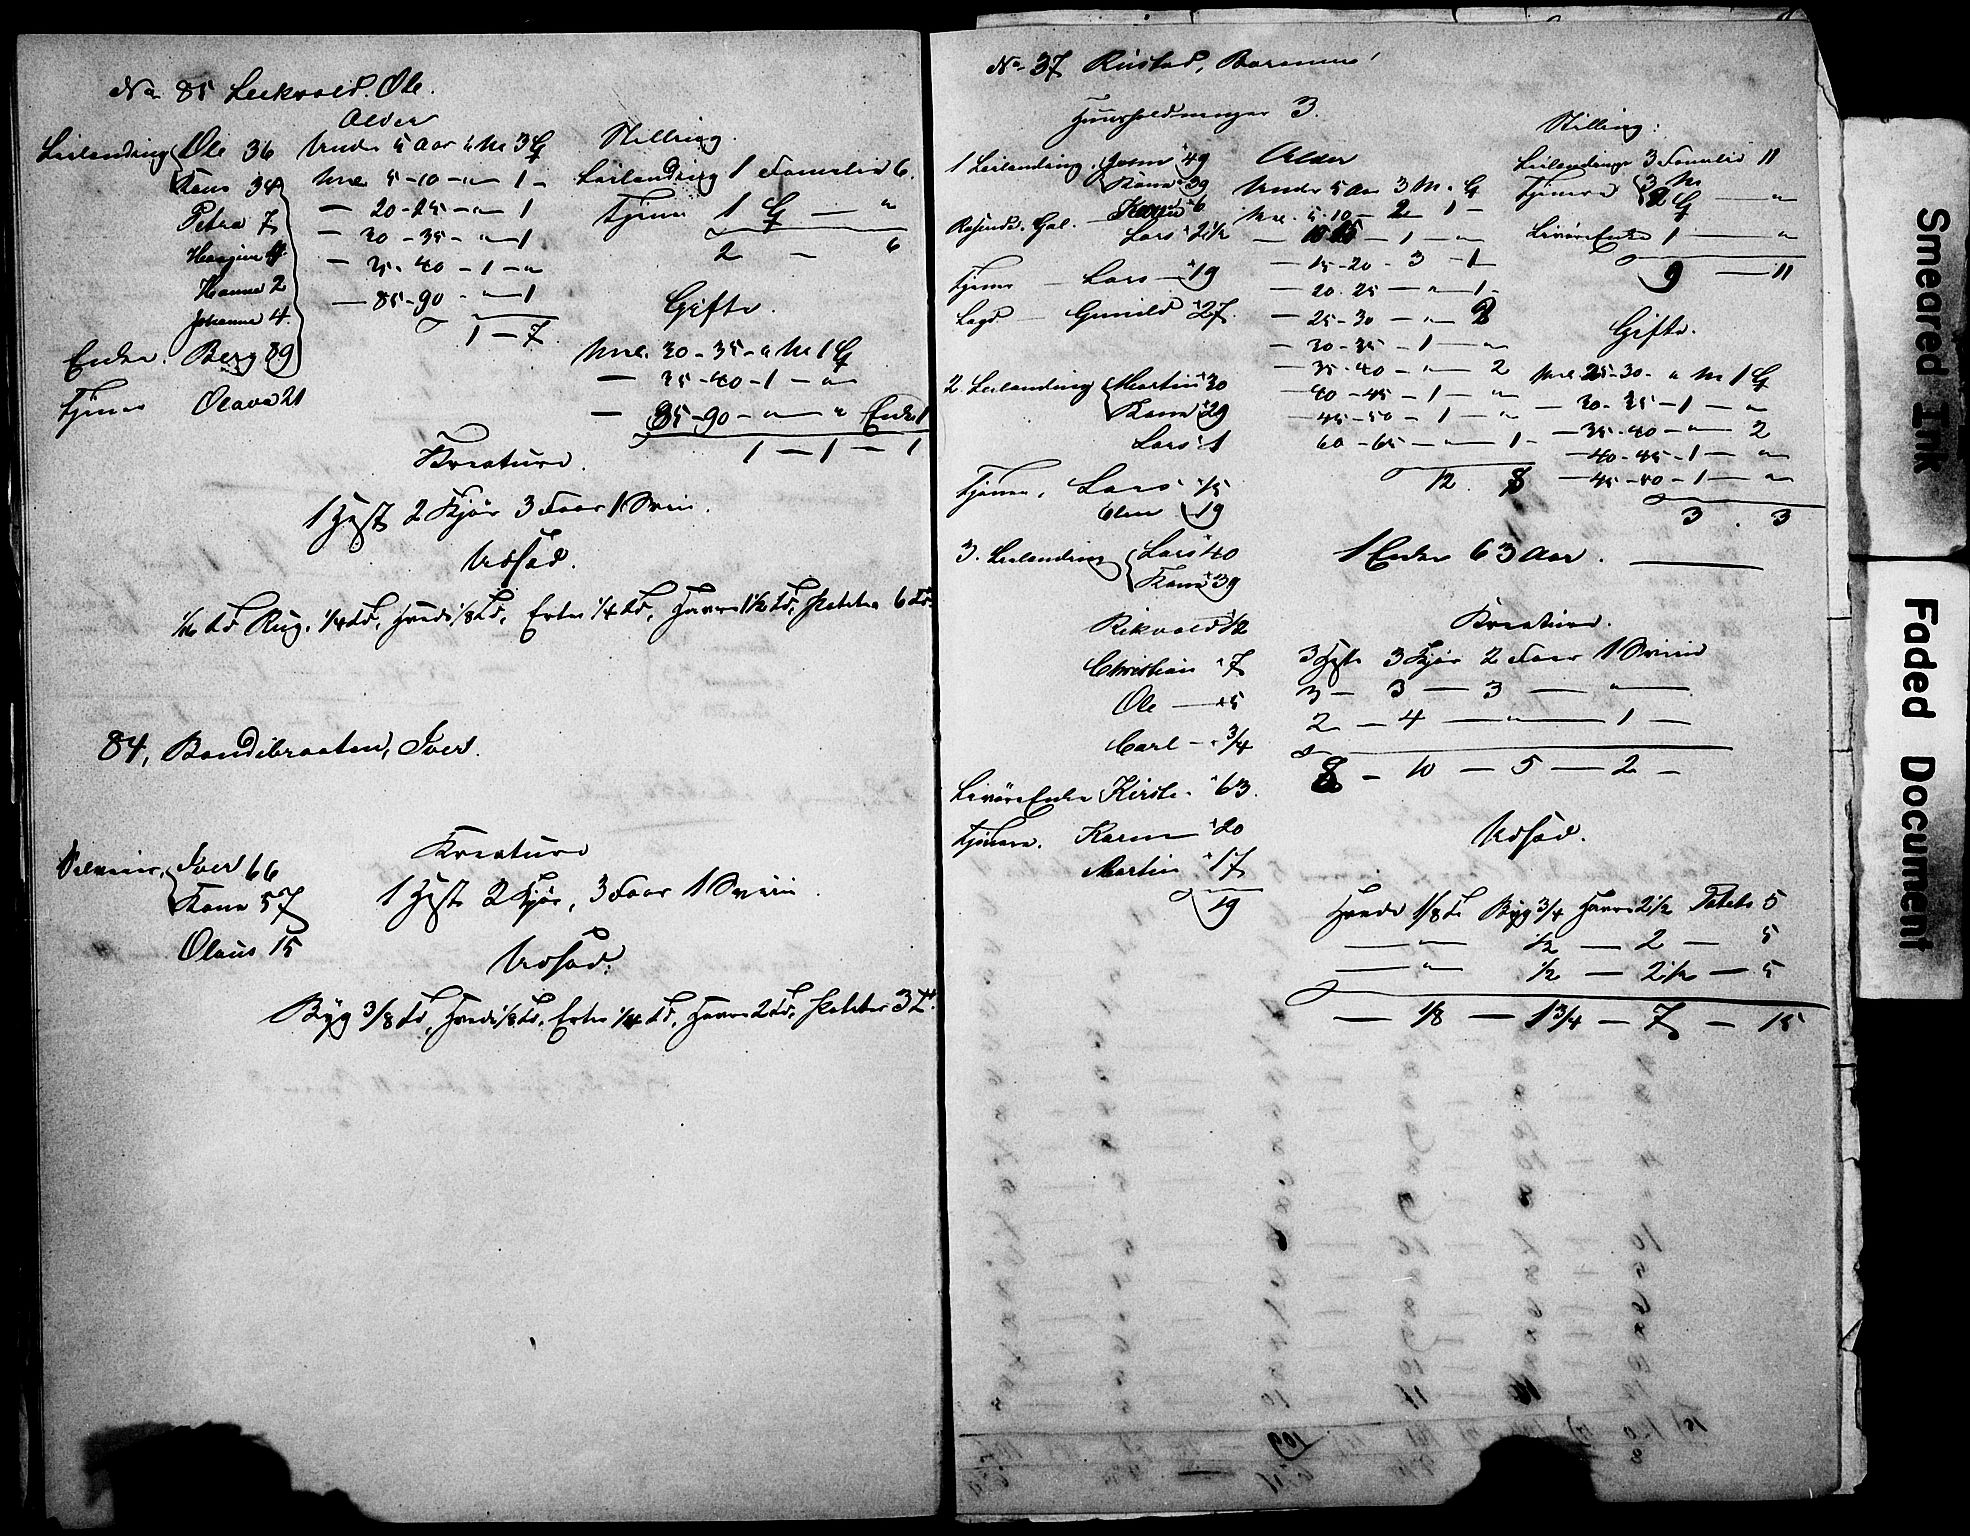 No 85 Leekvold. Ole.
Alder
Leilending Ole 36
Kone 34
Petra 7
Hanna 2
Johanne 4
Enke. Berg 89
Tjener Olava 21
Under 5 Aar " M 3 Q
Mel. 5-10 - " - 1 -
— 20-25 - " - 1
— 30-35 - " - 1
— 35-40 - 1 - "
— 85-90 - " - 1
1 - 7
Stilling.
Leilending 1 Familie 6.
Tjener 1 Q — "
2 - 6
Gifte.
Mel. 30-35 - " M 1 Q
— 35-40 - 1 - "
— 85-90 - " - " Enke 1
1 - 1 - 1
Kreature.
1 Hest 2 Kjör 3 Faar 1 Svin.
Udsæd.
1/16 Td Rug. 1/4 Td, Hvede 1/8 Td, Erter 1/4 Td, Havre 1 1/2 Td, Poteter 6 Td.
84, Bondibraaten, Iver.
Selveier, Iver 66
Kone 57
Olaus 15
Kreature
1 Hest 2 Kjör, 3 Faar 1 Sviin.
Udsæd.
Byg 3/8 Td, Hvede 1/8 Td. Erter 1/4 Td, Havre 2 Td, Poteter 3 Td.
No 37 Rustad,
Huusholdninger 3.
1 Leilending, " 49
Kone " 39
" 6
Lars " 2 1/2
Tjener — Lars — " 19
Lagd — Gunild " 27.
2 Leilending Martin " 30
Kone " 29
Lars " 1
Tjener, Lars " 15
" 19
3. Leilending Lars " 40
Kone " 39
Rikvald " 12
Christian " 7
Ole — " 5
Carl — " 3/4
Livöre Enke Kirste " 63.
Tjenere. Karen " 20
Martin " 17
19
Alder
Under 5 Aar 3 M. " Q
Mel. 5-10 - 2 1 -
— 10-15 - 1 - "
— 15-20 - 3 - 1
— 20-25 - " - 1 -
— 25-30 - " 2
— 30-35 - 1 - "
— 35-40 - " - 2
— 40-45 - 1 - "
— 45-50 - 1 - "
60-65 - " - 1 -
12 8
Stilling:
Leilendinge 3 Familie 11
Tjenere 3 M
2 Q — "
Livöre Enke 1 — "
9 - 11
Gifte.
Mel 25-30 - " M 1 Q
— 30-35 - 1 - "
— 35-40 - " - 2
— 40-45 - 1 - "
— 45-50 - 1 - "
3 . 3
1 Enke 63 Aar.
Kreature.
3 Heste 3 Kjör 2 Faar 1 Sviin
3 — 3 — 3 — "
2 — 4 — " — 1 —
8 - 10 - 5 - 2 -
Udsæd.
Hvede 1/8 Td Byg 3/4 Havre 2 1/2 Potets 5
— " — 1/2 — 2 — 5
— " — 1/2 — 2 1/2 — 5
— 1/8 — 1 3/4 — 7 — 15
Smeared Ink
Faded Document